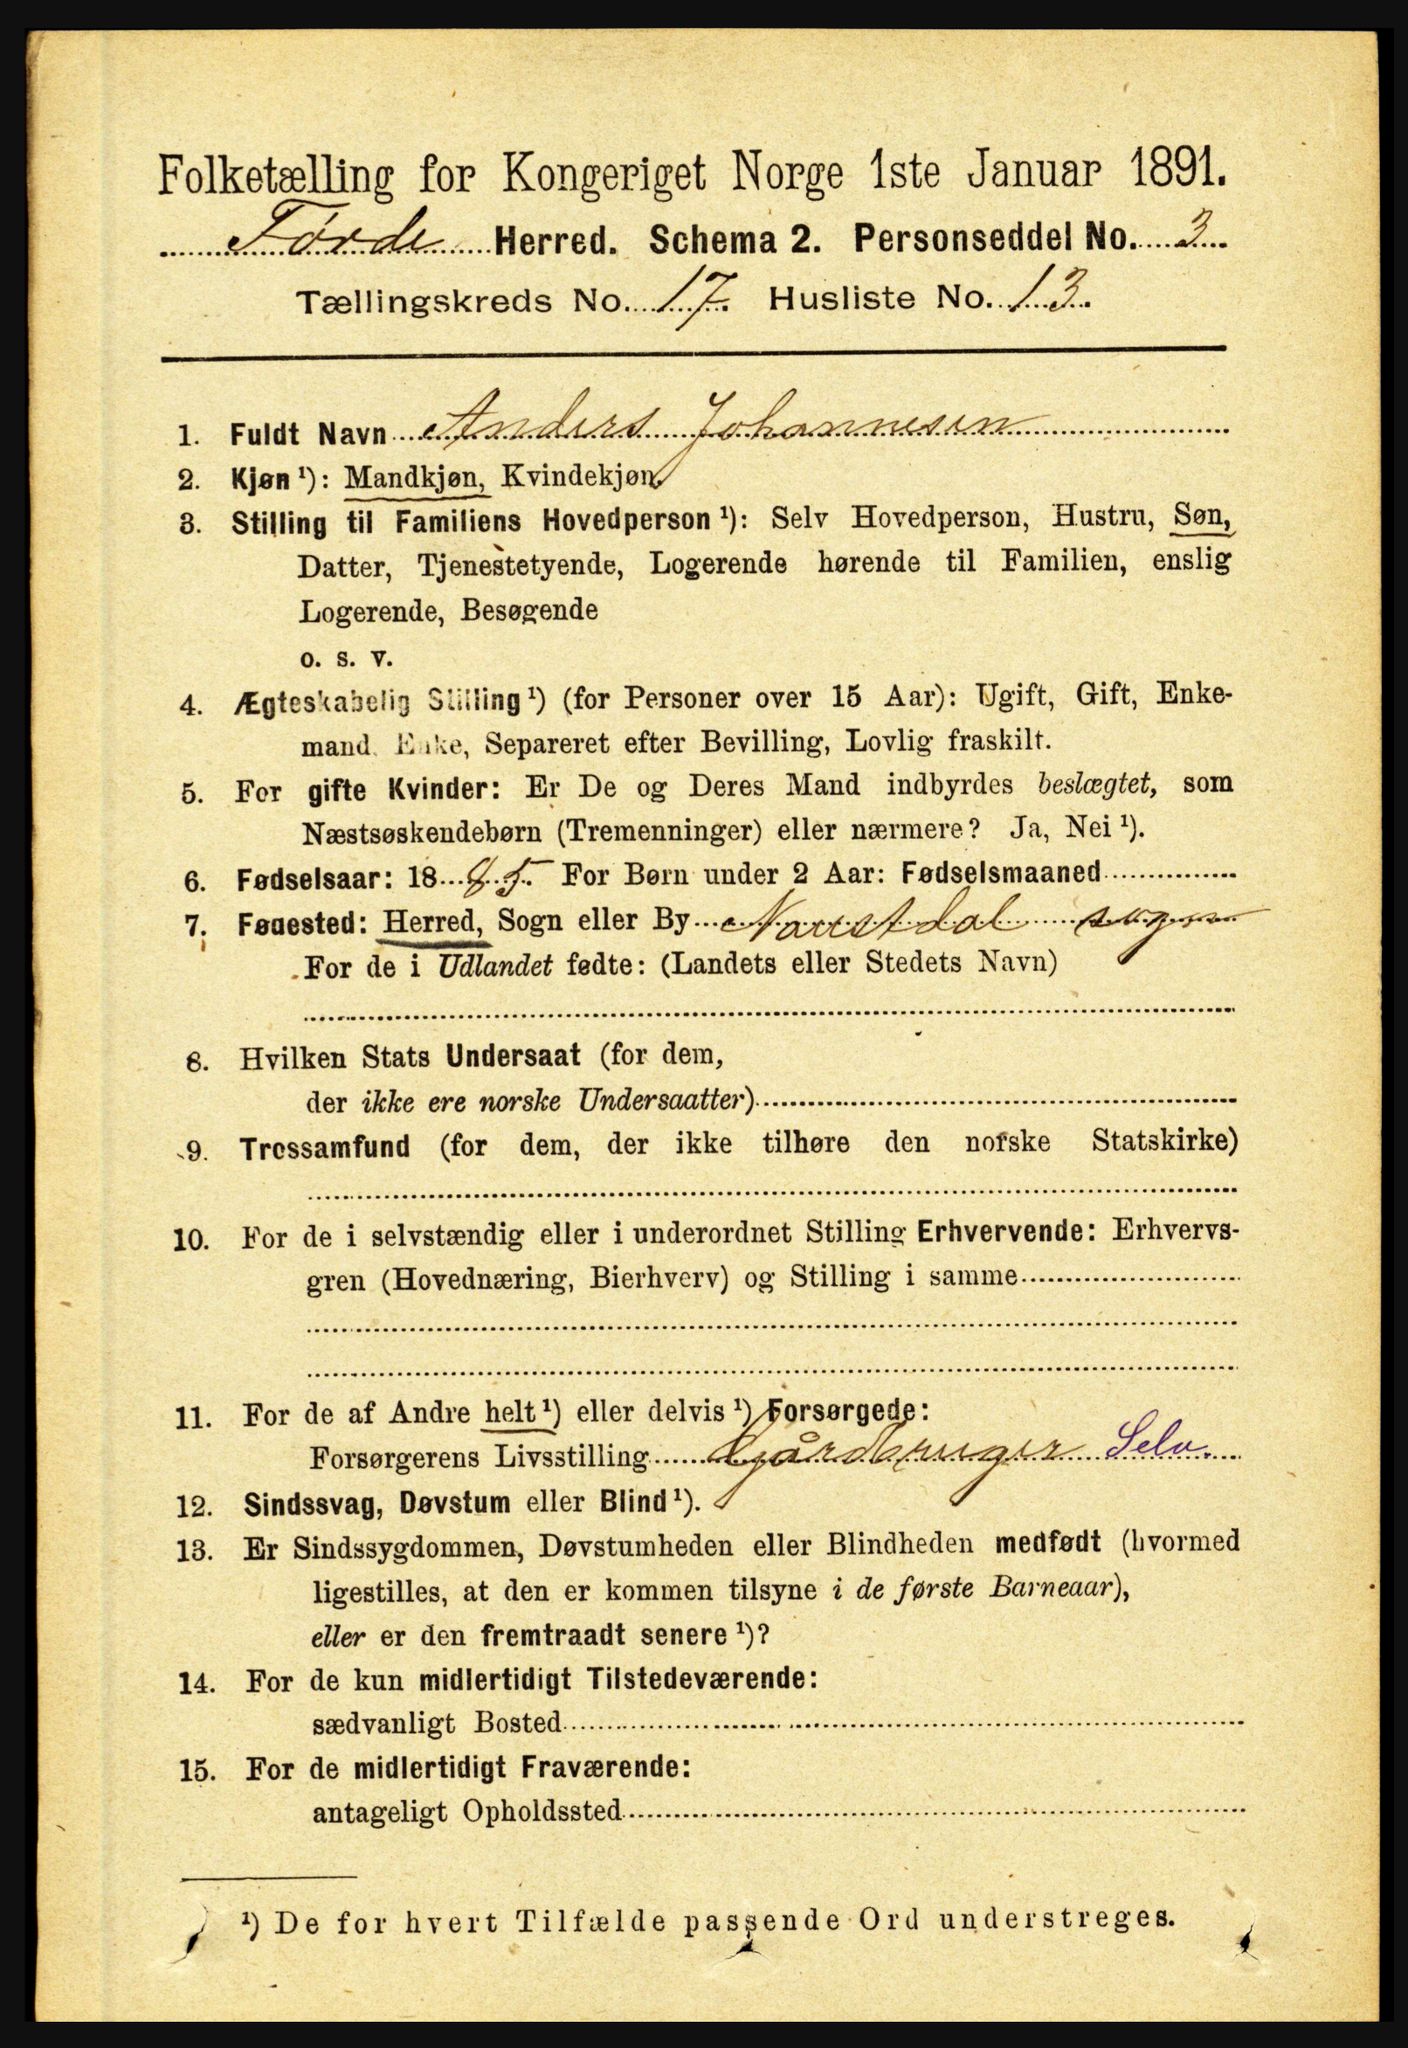 Folketælling for Kongeriget Norge 1ste Januar 1891.
Førde Herred. Schema 2. Personseddel No. 3
Tællingskreds No. 17. Husliste No. 13.
1. Fuldt Navn Anders Johannesen
2. Kjøn ¹): Mandkjøn, Kvindekjøn.
3. Stilling til Familiens Hovedperson ¹): Selv Hovedperson, Hustru, Søn,
Datter, Tjenestetyende, Logerende hørende til Familien, enslig
Logerende, Besøgende
o. s. v.
4. Ægteskabelig Stilling ¹) (for Personer over 15 Aar): Ugift, Gift, Enke-
mand, Enke, Separeret efter Bevilling, Lovlig fraskilt.
5. For gifte Kvinder: Er De og Deres Mand indbyrdes beslægtet, som
Næstsøskendebørn (Tremenninger) eller nærmere? Ja, Nei ¹).
6. Fødselsaar: 1885. For Børn under 2 Aar: Fødselsmaaned
7. Fødested: Herred, Sogn eller By Naustdal sogn
For de i Udlandet fødte: (Landets eller Stedets Navn)
8. Hvilken Stats Undersaat (for dem,
der ikke ere norske Undersaatter)
9. Trossamfund (for dem, der ikke tilhøre den norske Statskirke)
10. For de i selvstændig eller i underordnet Stilling Erhvervende: Erhvervs-
gren (Hovednæring, Bierhverv) og Stilling i samme
11. For de af Andre helt ¹) eller delvis ¹) Forsørgede:
Forsørgerens Livsstilling Gårdbruger Selv.
12. Sindssvag, Døvstum eller Blind ¹).
13. Er Sindssygdommen, Døvstumheden eller Blindheden medfødt (hvormed
ligestilles, at den er kommen tilsyne i de første Barneaar),
eller er den fremtraadt senere ¹)?
14. For de kun midlertidigt Tilstedeværende:
sædvanligt Bosted
15. For de midlertidigt Fraværende:
antageligt Opholdssted
¹) De for hvert Tilfælde passende Ord understreges.